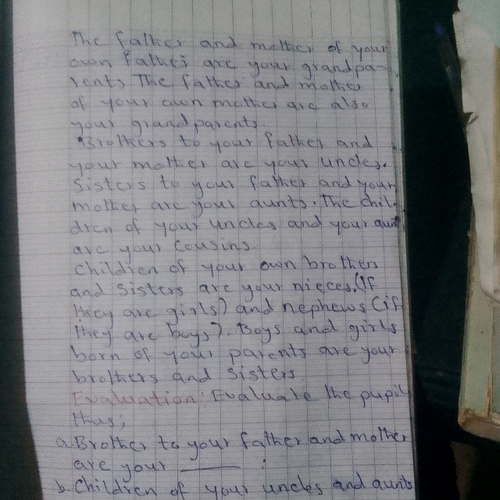 The father and mother of your
own father's are your grandpa-
rents The father and mother
of your own mother are also
your grandparents.
Brothers to your father and
your mother are your uncles.
Sisters to your father and your
mother are your aunts. The chil-
dren of your uncles and your aunt
are your Cousins.
Children of your own brothers
and Sisters are your nieces. (If
they are girls) and nephews (if
they are boys). Boys and girls
born of your parents are your
brothers and Sisters
Evaluation: Evaluate the pupil
thus;
a. Brother to your father and mother
are your ______ ;
b. Children of your uncles and aunts